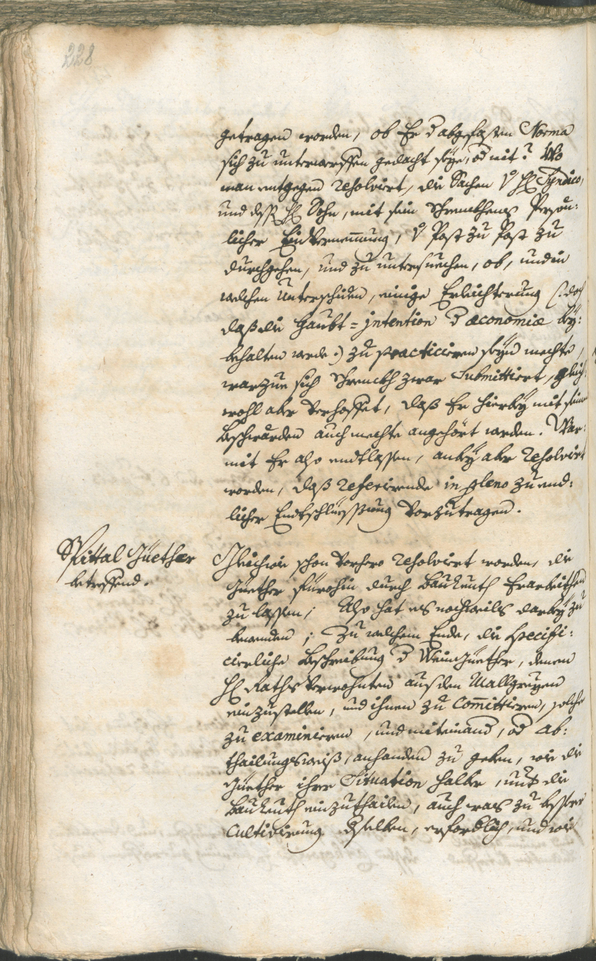 228
getragen worden, ob Er d abgefasten Norma
sich zu unterwerffen gedacht seye, od nit? Wo
man entgegen resolvirt, die Sachen
und deß H: Sohn, mit sein Persöhn:
licher Einvernemmung, V Post zu Post zu
durchgehen, und zu untersuechen, ob, und in
welchen Unterschiden, einige Erleichterung (: doch
daß die Haubt=intention d œconomiæ bey:
behalten werde :) zu practicieren seyn mechte,
warzue sich zwar Submittiert, gleich
wohl aber verhoffet, daß Er hierbey mit seinen
beschwärden auch mechte angehört werden. War:
mit Er also entlassen, anbey aber resolvirt
worden, daß referierende in pleno zu end:
licher Entschliessung vorzutragen.
Spittal Güether
betreffend.
Gleichwie schon vorhero resolvirt worden, die
Güether fürohin durch Bauleuth
zu lassen; Also hat es nochmals darbey zu
bewenden; Zu welchem Ende, die specifi:
cierliche beschreibung d Weingüether, denen
H: Raths Verwohnten auf den Wallgrueen
einzustellen, und ihnen zu Comittieren, solche
zu examinieren, und miteinand, od ab:
thailungsweiß, anhanden zu geben, wie die
Güether ihrer Situation halber, und die
Bauleuth einzuthailen, auch was zu besserer
Cultivierung dselben, erforderlich, und wie